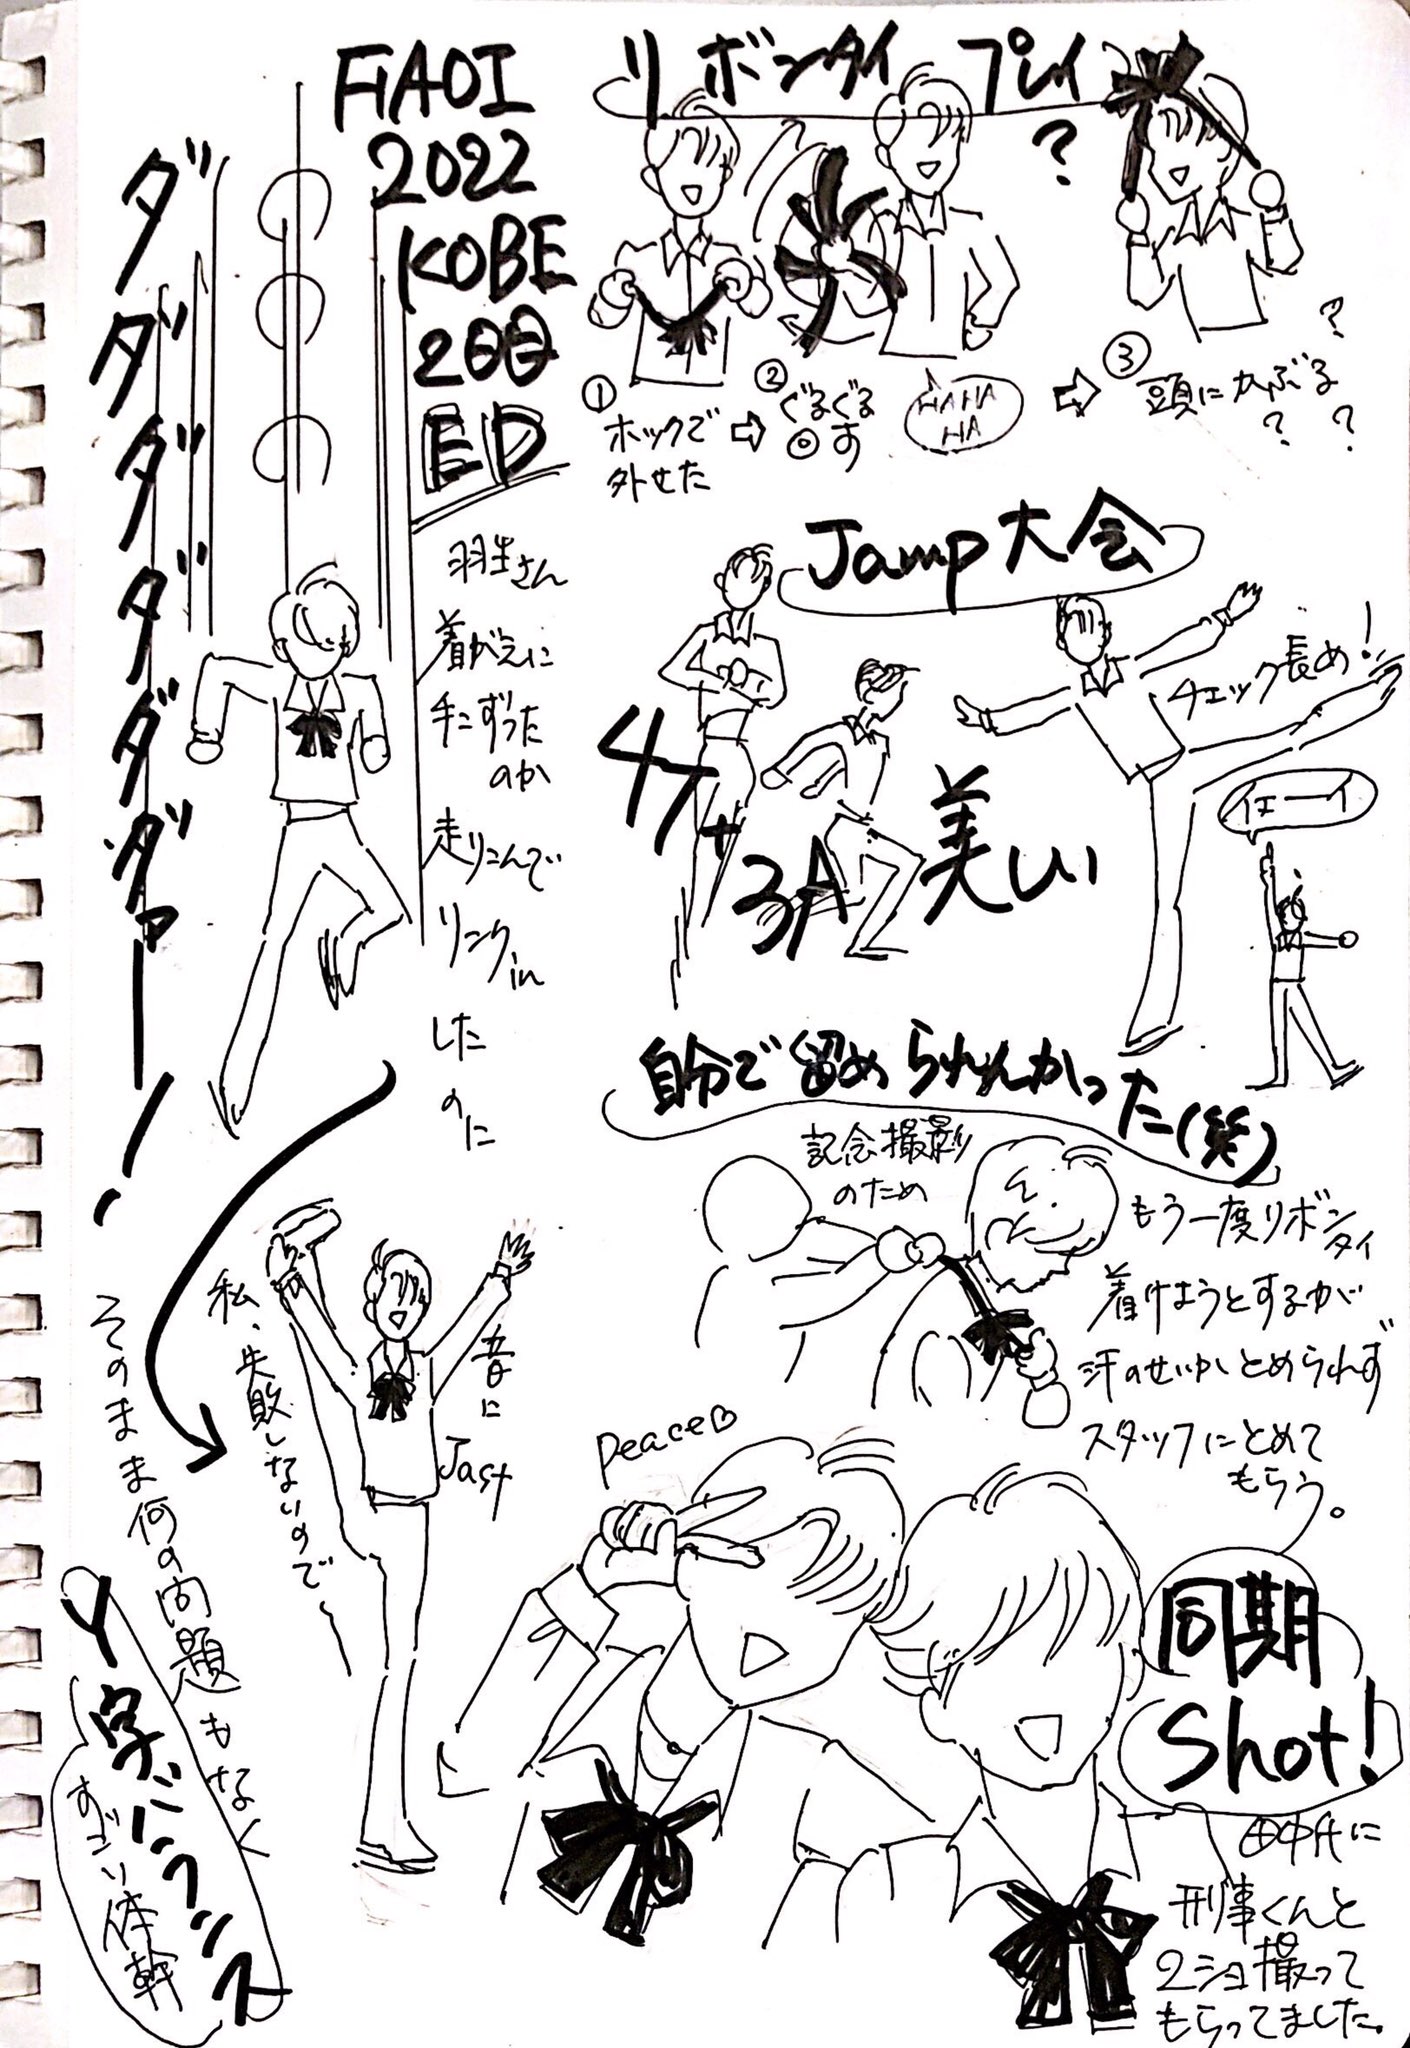 FiAOI
2022
KOBE
2日目
ED
ダダダダダダァーー！
羽生さん
着がえに
手こずった
のか
走りこんで
リンクin
した
のに
そのまま何の問題もなく
Y字バランス
すごい体幹
私、失敗しないので
音に
Jast
リボンタイプレイ
?
①
ホックで
外せた
⇨
②
ぐるぐる
回す
HAHA
HA
⇨
③
頭にかぶる
?
?
?
Jamp大会
4T
+
3A
美しい
チェック長め!
イエーイ
自分で留められんかった(笑)
記念撮影
のため
もう一度リボンタイ
着けようとするが
汗のせいかとめられず
スタッフにとめて
もらう。
peace♡
同期
Shot!
田中Aに
刑事くんと
2ショ撮って
もらってました。